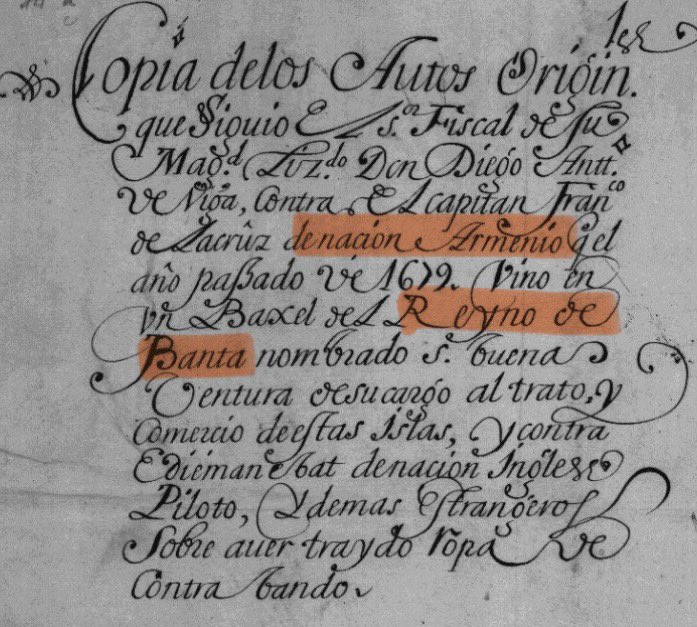 Copia delos Autos Origin.
que Siguio El s.or Fiscal de su
Mag.d Liz.do Don Diego Antt.o
de Viga, Contra El capitan Fran.co
de Lacruz de nación Armenio q el
año passado de 1679. Vino en
vn Baxel del Reyno de
Banta nombrado s. buena
Ventura de su cargo al trato, y
Comercio de estas Islas, y contra
Edieman Bat de nación Ingless
Piloto, Y demas Estrangeros
Sobre auer traydo ropa de
Contra bando.